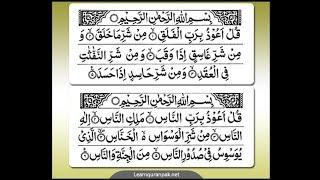 بِسْمِ اللهِ الرَّحْمٰنِ الرَّحِيْمِ
قُلْ اَعُوْذُ بِرَبِّ الْفَلَقِ ۙ مِنْ شَرِّ مَا خَلَقَ ۙ وَ
مِنْ شَرِّ غَاسِقٍ اِذَا وَقَبَ ۙ وَ مِنْ شَرِّ النَّفّٰثٰتِ
فِى الْعُقَدِ ۙ وَ مِنْ شَرِّ حَاسِدٍ اِذَا حَسَدَ
بِسْمِ اللهِ الرَّحْمٰنِ الرَّحِيْمِ
قُلْ اَعُوْذُ بِرَبِّ النَّاسِ ۙ مَلِكِ النَّاسِ ۙ اِلٰهِ
النَّاسِ ۙ مِنْ شَرِّ الْوَسْوَاسِ ۙ الْخَنَّاسِ ۙ الَّذِىْ
يُوَسْوِسُ فِىْ صُدُوْرِ النَّاسِ ۙ مِنَ الْجِنَّةِ وَالنَّاسِ
Learnquranpak.net